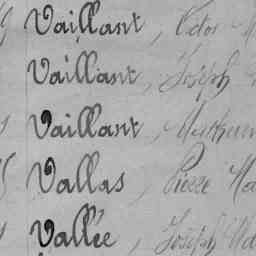 Vaillant, Victor
Vaillant, Joseph
Vaillant, Mathurin
Vallas, Pierre Ma
Vallée, Joseph